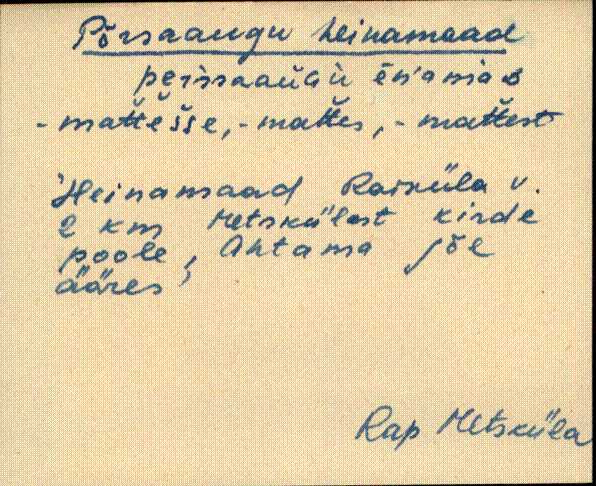 Põrsaaugu heinamaad
- mattešše, - mattes, - mattest
Heinamaad Raikküla v.
2 km Metskülast kirde
poole, Ahtama jõe
ääres
Rap Metsküla